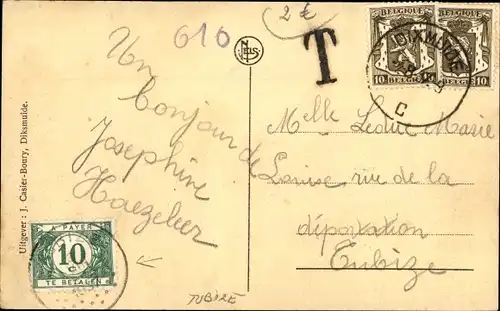 2 €
616
T
NELS
BELGIQUE
10 BELGIE
BELGIQUE
BELGIE 10
DIXMUDE
C
Uitgever : J. Casier-Boury, Diksmuide.
Un
bonjour de
Josephine
Haezebeer
Melle Leduc Marie
Louise rue de la
déportation
Tubize
A PAYER
10
TE BETALEN
TUBIZE